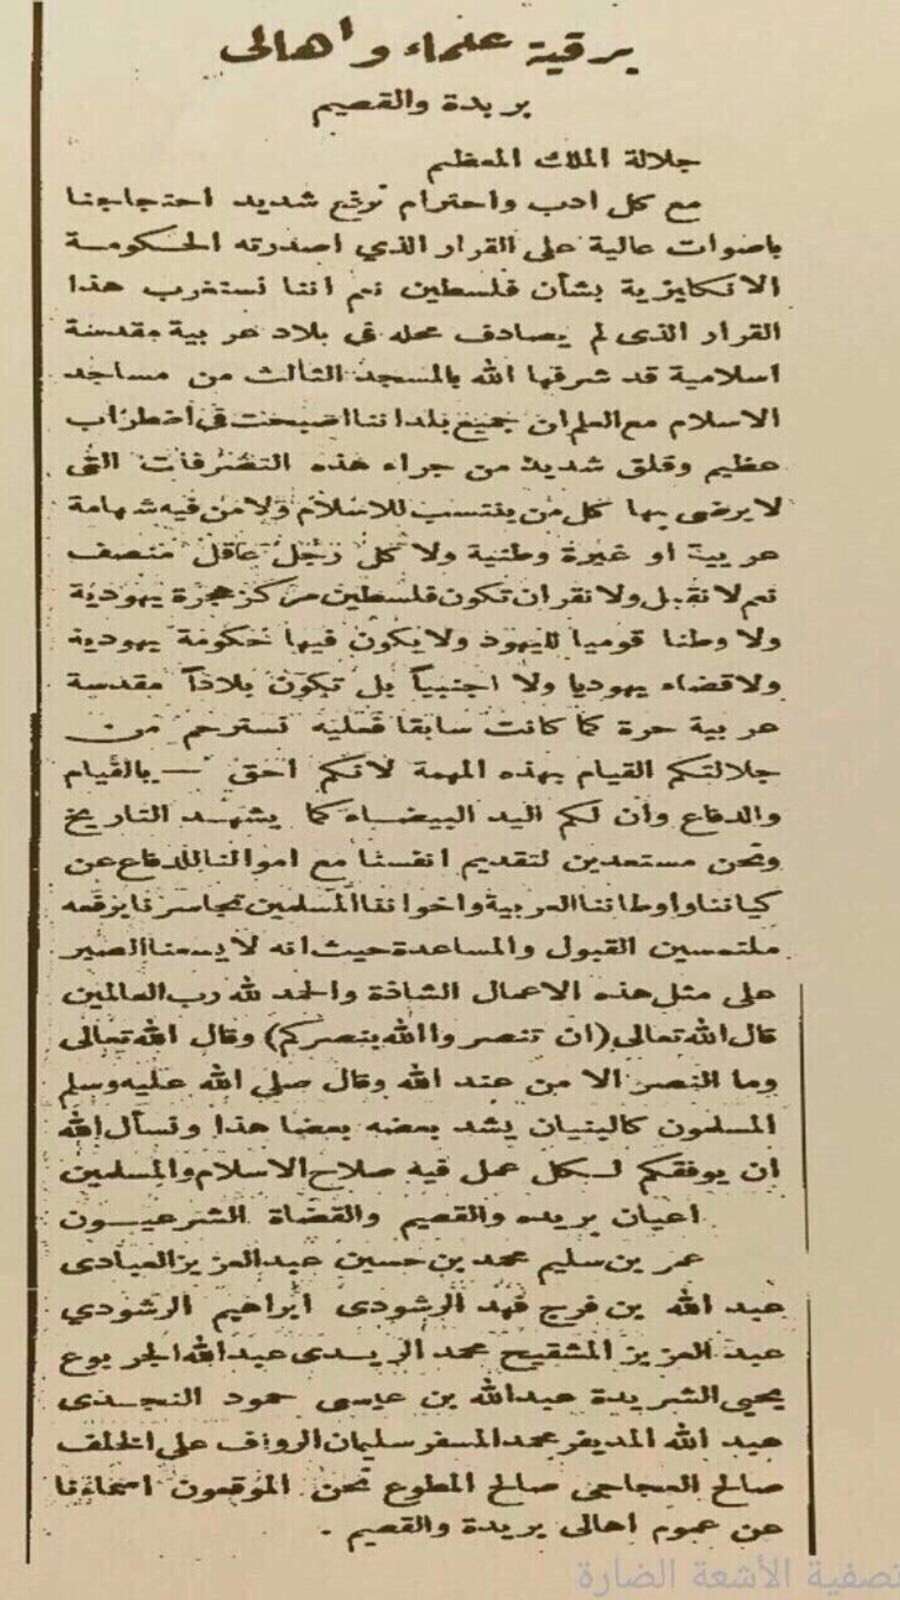 برقية علماء واهالى
بريدة والقصيم
جلالة الملك المعظم
مع كل ادب واحترام نرفع شديد احتجاجنا
باصوات عالية على القرار الذي اصدرته الحكومة
الانكليزية بشأن فلسطين نعم اننا نستغرب هذا
القرار الذى لم يصادف محله فى بلاد عربية مقدسة
اسلامية قد شرفها الله بالمسجد الثالث من مساجد
الاسلام مع العلم ان جميع بلداننا اصبحت في اضطراب
عظيم وقلق شديد من جراء هذه التصرفات التى
لا يرضى بها كل من ينتسب للاسلام ولا من فيه شهامة
عربية او غيرة وطنية ولا كل رجل عاقل منصف
نعم لا نقبل ولا نقر ان تكون فلسطين مركز هجرة يهودية
ولا وطنا قوميا لليهود ولا يكون فيها حكومة يهودية
ولا قضاء يهوديا ولا اجنبياً بل تكون بلاداً مقدسة
عربية حرة كما كانت سابقا فعليه نسترحم من
جلالتكم القيام بهذه المهمة لانكم احق — بالقيام
والدفاع وان لكم اليد البيضاء كما يشهد التاريخ
ونحن مستعدين لتقديم انفسنا مع اموالنا للدفاع عن
كياننا واوطاننا العربية واخواننا المسلمين تجاسرنا برفعه
ملتمسين القبول والمساعدة حيث انه لا يسعنا الصبر
على مثل هذه الاعمال الشاذة والحمد لله رب العالمين
قال الله تعالى (ان تنصروا الله ينصركم) وقال الله تعالى
وما النصر الا من عند الله وقال صلى الله عليه وسلم
المسلمون كالبنيان يشد بعضه بعضا هذا ونسأل الله
ان يوفقكم لكل عمل فيه صلاح الاسلام والمسلمين
اعيان بريده والقصيم والقضاة الشرعيون
عمر بن سليم محمد بن حسين عبد العزيز العبادى
عبد الله بن فرج فهد الرشودى ابراهيم الرشودي
عبد العزيز المشقيح محمد الربدى عبد الله الجربوع
يحيى الشريدة عبد الله بن عيسى حمود النجدى
عبد الله المديفر محمد المسفر سليمان الرواف على الخلف
صالح العجاجى صالح المطوع نحن الموقعون اسماءنا
عن عموم اهالى بريدة والقصيم .
تصفية الأشعة الضارة